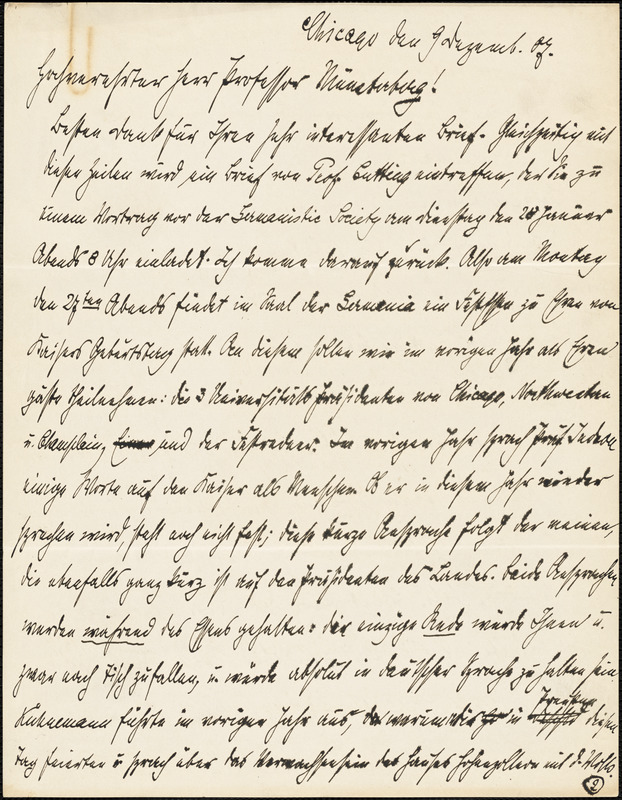 Chicago den 9 Dezemb. 07.
Hochverehrter Herr Professor Münsterberg!
Besten Dank für Ihren sehr interessanten Brief. Gleichzeitig mit
diesen Zeilen wird ein Brief von Prof. Cutting eintreffen, der Sie zu
einem Vortrag vor der Germanistic Society am Dienstag den 28 Januar
Abends 8 Uhr einladet. Ich komme darauf zurück. Also am Montag
den 27ten Abends findet im Saal der Germania ein Festessen zu Eren von
Kaisers Geburtstag statt. An diesem sollen wie im vorigen Jahr als Eren
gäste theilnehmen: die 3 Universitäts Präsidenten von Chicago, Northwestern
u. und der Festredner. Im vorigen Jahr sprach Judson
einige Worte auf den Kaiser als Menschen. Ob er in diesem Jahr wieder
sprechen wird, steht noch nicht fest; diese kurze Ansprache folgt der meinen,
die ebenfalls ganz kurz ist auf den Präsidenten des Landes. Beide Ansprachen
werden während des Essens gehalten: die einzige Rede würde Ihnen u.
zwar nach Tisch zufallen, u. würde absolut in deutscher Sprache zu halten sein
Kuhnemann führte im vorigen Jahr aus, warum wir in diesen
Tag feierten u sprach über das Verwachsensein des Hauses Hohenzollern mit d.
2